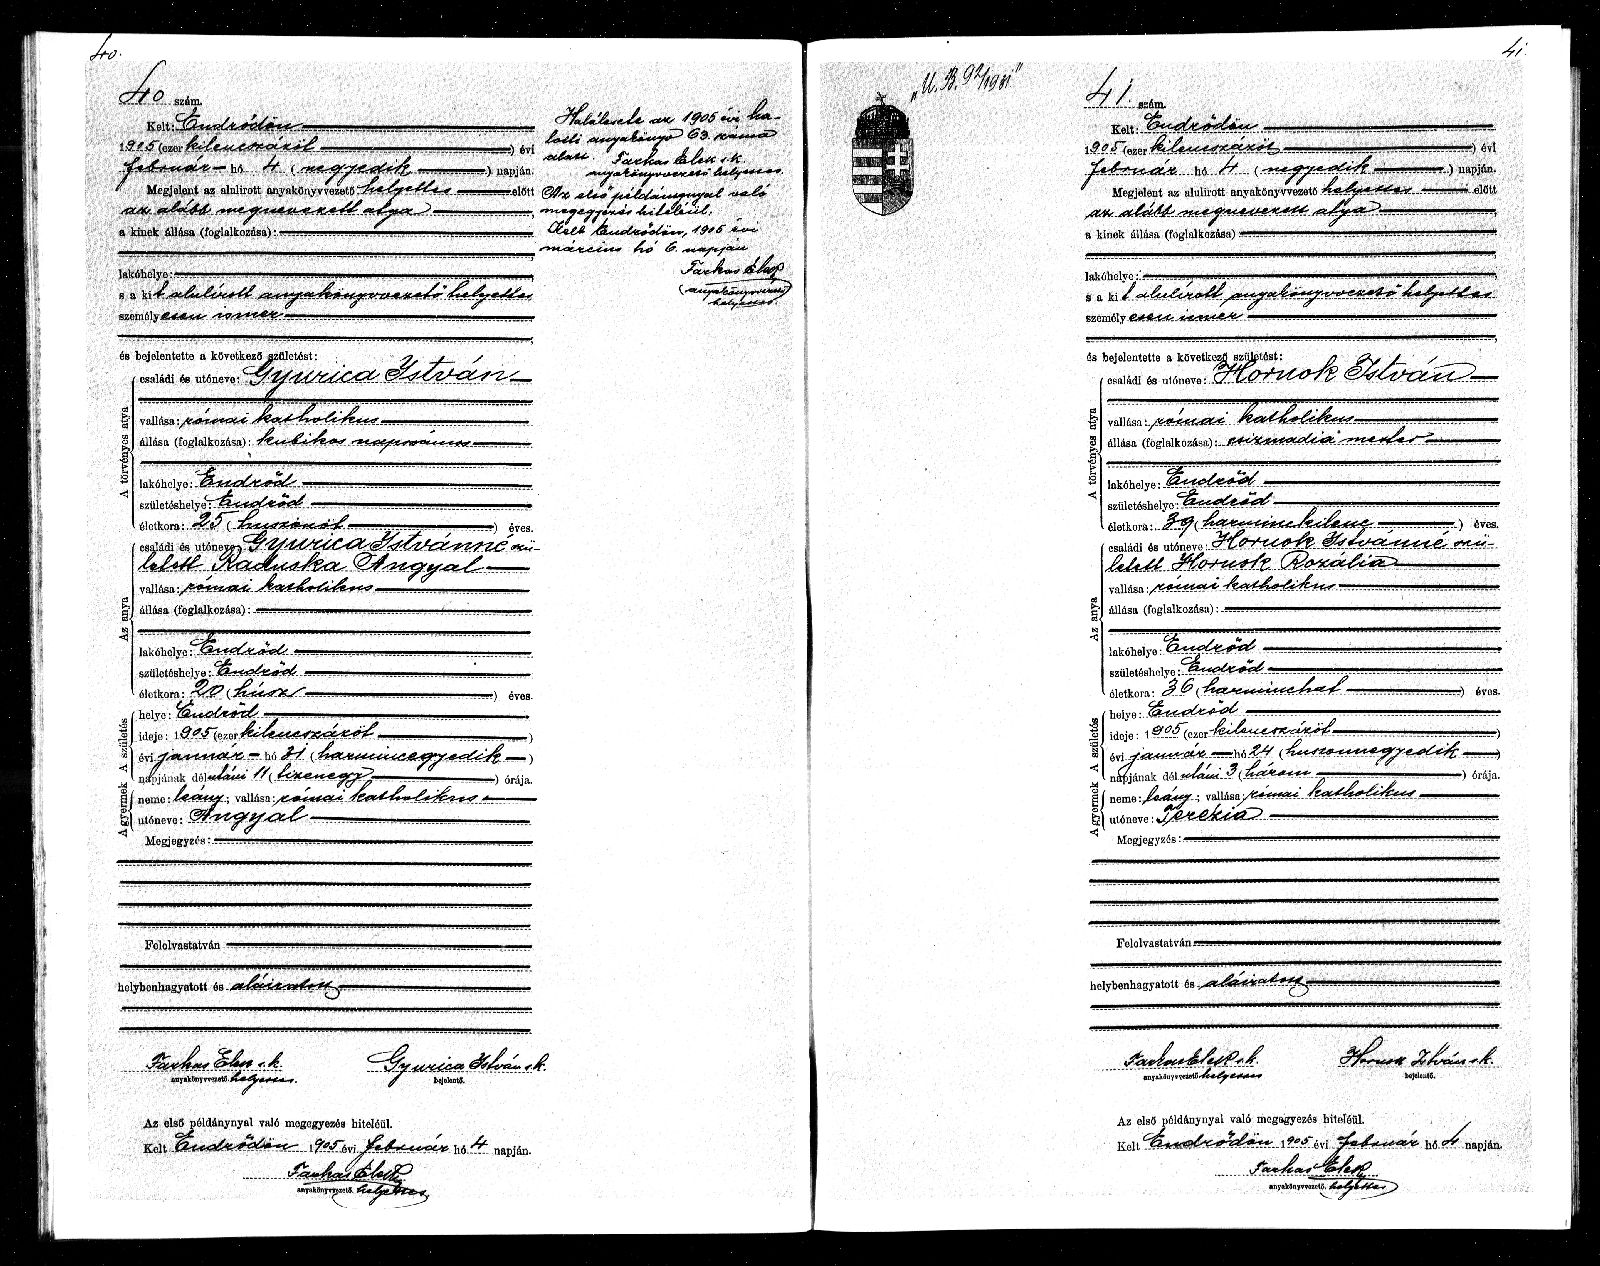 40.
40 szám.
Kelt: Endrődön
1905 (ezer kilencszázöt ) évi
február hó 4 ( negyedik ) napján.
Megjelent az alulirott anyakönyvvezető helyettes előtt
az alább megnevezett atya
a kinek állása (foglalkozása):
lakóhelye:
s a kit alulírott anyakönyvvezető helyettes
személyesen ismer
és bejelentette a következő születést:
A törvényes atya
családi és utóneve: Gyurica István
vallása: római katholikus
állása (foglalkozása): kubikos napszámos
lakóhelye: Endrőd
születéshelye: Endrőd
életkora: 25 ( huszonöt ) éves.
Az anya
családi és utóneve: Gyurica Istvánné szü-
letett Raduska Angyal
vallása: római katholikus
állása (foglalkozása):
lakóhelye: Endrőd
születéshelye: Endrőd
életkora: 20 ( húsz ) éves.
A születés
helye: Endrőd
ideje: 1905 (ezer kilencszázöt )
évi január hó 31 ( harmincegyedik )
napjának délutáni 11 ( tizenegy ) órája.
A gyermek
neme: leány; vallása: római katholikus
utóneve: Angyal
Megjegyzés:
Felolvastatván
helybenhagyatott és aláiratott
Farkas Elek s.k. Gyurica István s.k.
anyakönyvvezető helyettes. bejelentő.
Az első példánynyal való megegyezés hiteléül.
Kelt Endrődön 1905 évi február hó 4 napján.
Farkas Elek
anyakönyvvezető. helyettes
Halálesete az 1905 évi ha-
lotti anyakönyv 63. száma
alatt. Farkas Elek s.k.
anyakönyvvezető helyettes.
Az első példánynyal való
megegyezés hiteléül.
Kelt Endrődön, 1905 évi
március hó 6. napján
Farkas Elek
(anyakönyvvezető)
helyettes.
"U. B. 92/1981"
41
41. szám.
Kelt: Endrődön
1905 (ezer kilencszázöt ) évi
február hó 4 ( negyedik ) napján.
Megjelent az alulirott anyakönyvvezető helyettes előtt
az alább megnevezett atya
a kinek állása (foglalkozása)
lakóhelye:
s a kit alulírott anyakönyvvezető helyettes
személyesen ismer
és bejelentette a következő születést:
A törvényes atya
családi és utóneve: Hornok István
vallása: római katholikus
állása (foglalkozása): csizmadia mester
lakóhelye: Endrőd
születéshelye: Endrőd
életkora: 39 ( harminckilenc ) éves.
Az anya
családi és utóneve: Hornok Istvánné szü-
letett Hornok Rozália
vallása: római katholikus
állása (foglalkozása):
lakóhelye: Endrőd
születéshelye: Endrőd
életkora: 36 ( harminchat ) éves.
A születés
helye: Endrőd
ideje: 1905 (ezer kilencszázöt )
évi január hó 24 ( huszonnegyedik )
napjának délutáni 3 ( három ) órája.
A gyermek
neme: leány; vallása: római katholikus
utóneve: Terézia
Megjegyzés:
Felolvastatván
helybenhagyatott és aláiratott
Farkas Elek s.k. Hornok István s.k.
anyakönyvvezető helyettes bejelentő.
Az első példánynyal való megegyezés hiteléül.
Kelt Endrődön 1905 évi február hó 4 napján.
Farkas Elek
anyakönyvvezető. helyettes